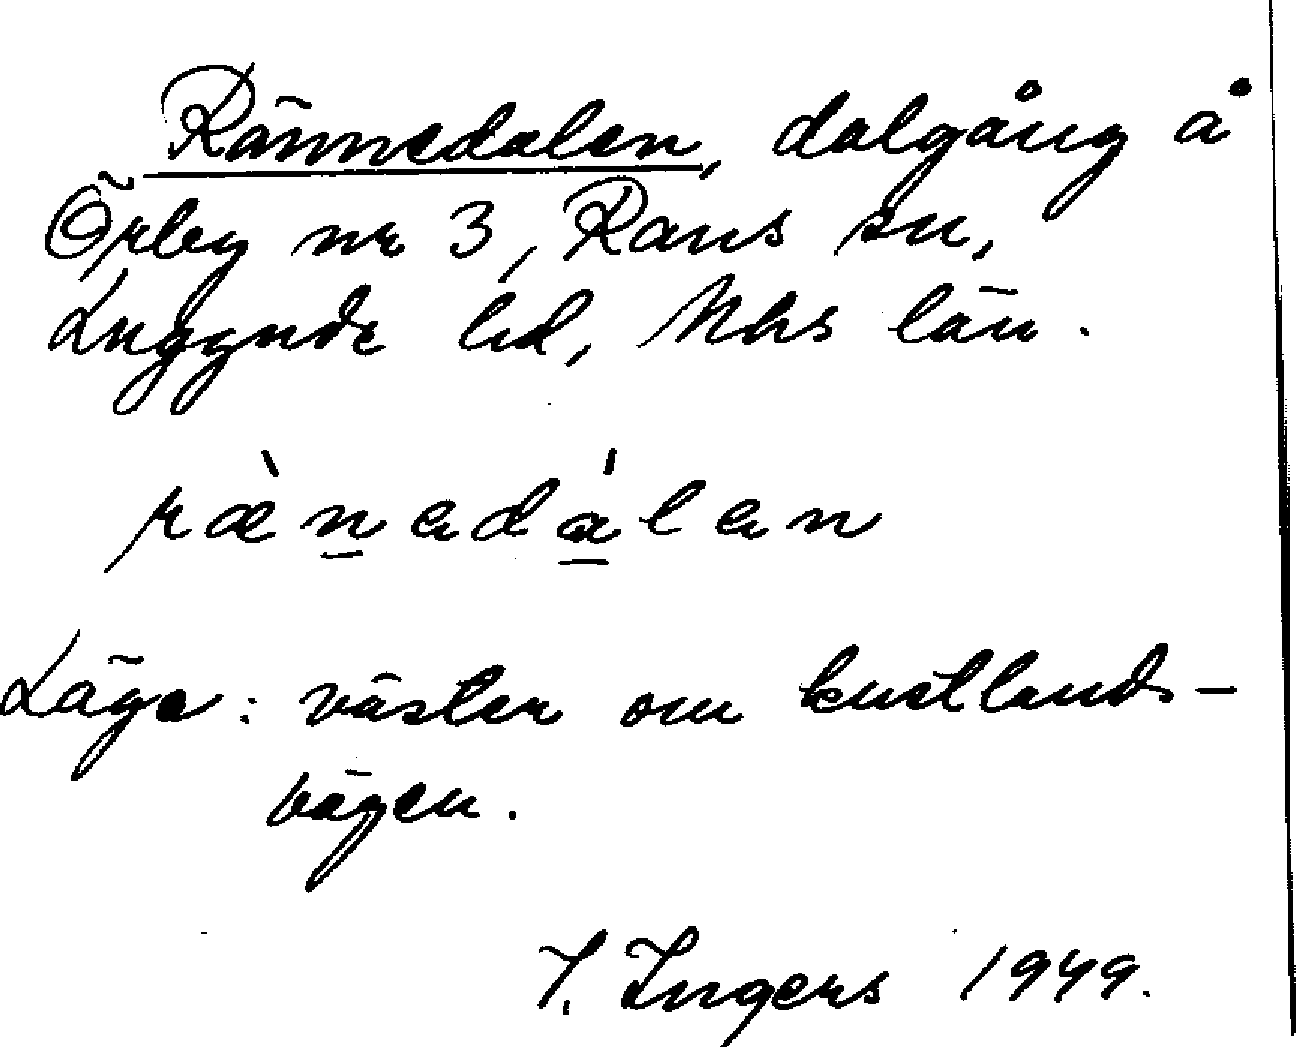 Rännedalen, dalgång å
Örby nr 3, Raus sn,
Luggude hd, Mhs län.
ræ̀nedálen
Läge: väster om kustlands-
vägen.
I. Ingers 1949.